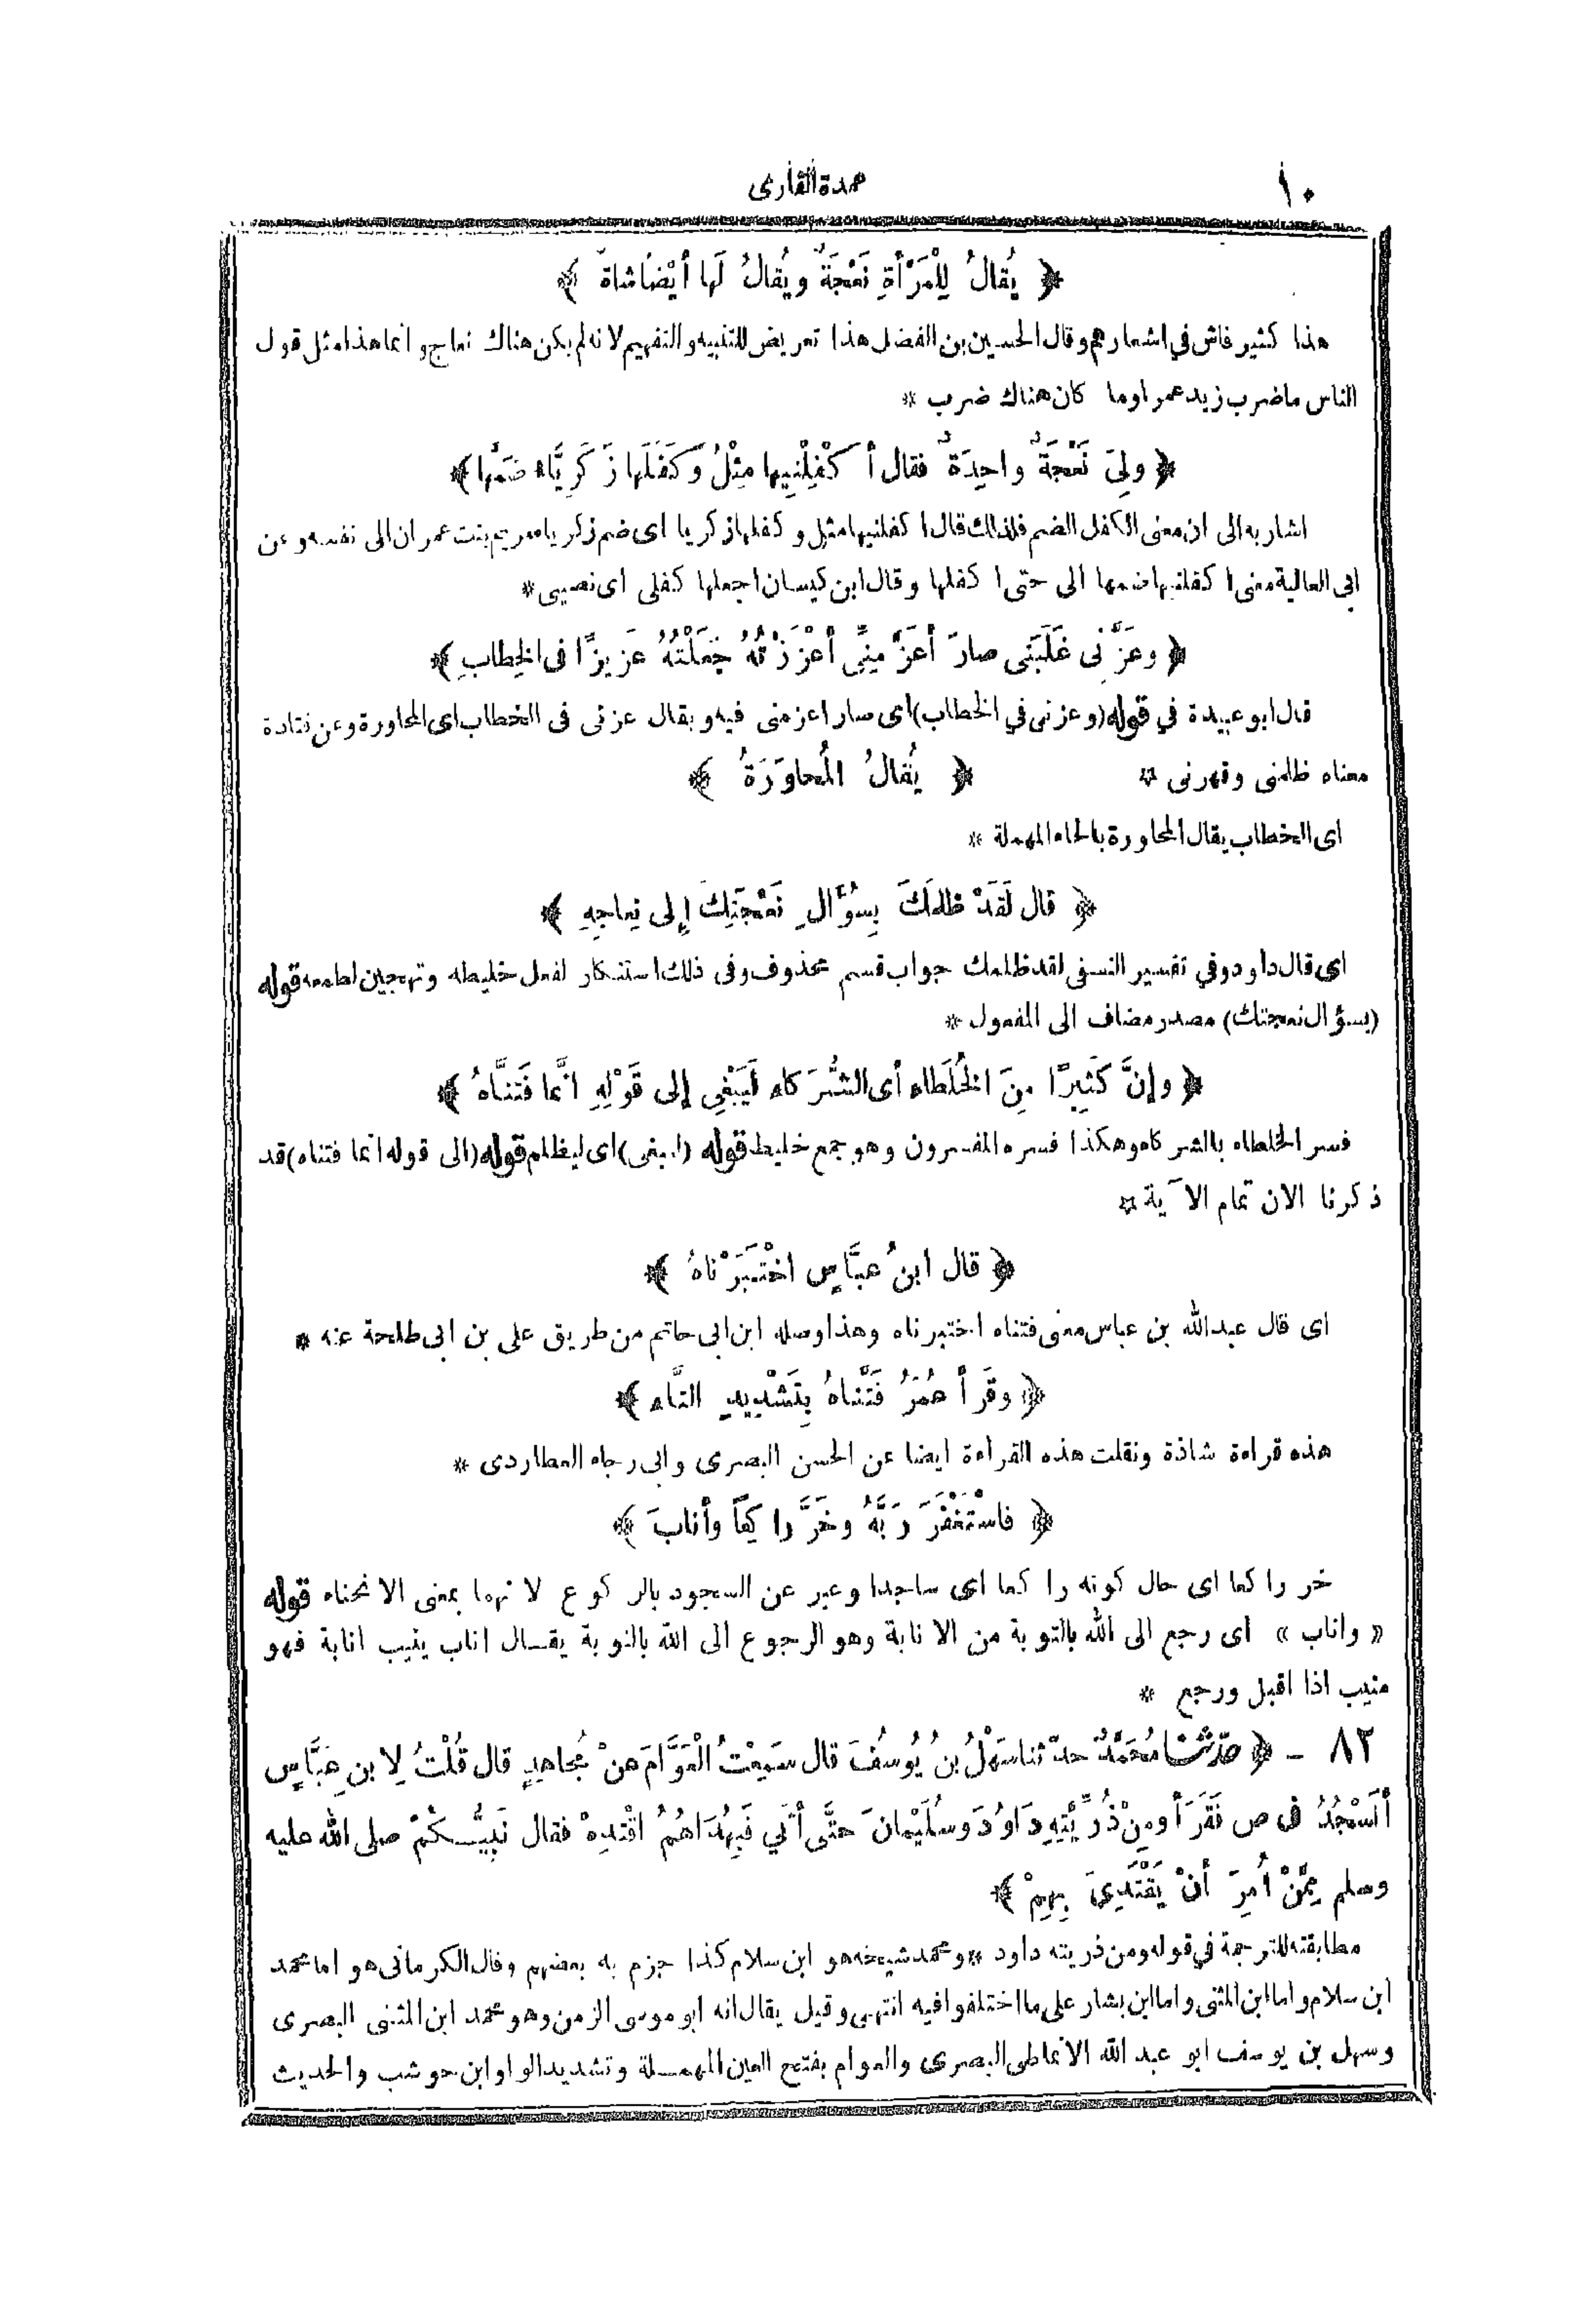 ١٠
عمدة القارى
﴿ يُقالُ لِلْمَرْأةِ نَعْجَةٌ ويُقالُ لَها أيْضًا شاةٌ ﴾
هذا كثير فاش في اشعارهم وقال الحسين بن الفضل هذا تعريض للتنبيه والتفهيم لانه لم يكن هناك نعاج وانما هذا مثل قول
الناس ما ضرب زيد عمرا وما كان هناك ضرب *
﴿ ولِيَ نَعْجَةٌ واحِدَةٌ فقال أكْفِلْنِيها مِثْلُ وَكَفَلَها زَكَرِيَّاء ضَمَّها ﴾
اشار به الى ان معنى الكفل الضم فلذلك قال اكفلنيها مثل وكفلها زكريا اى ضم زكريا مريم بنت عمران الى نفسه وعن
ابي العالية معنى اكفلنيها ضمها الى حتى اكفلها وقال ابن كيسان اجعلها كفلى اى نصيبى *
﴿ وعَزَّنِى غَلَبَنِى صارَ أعَزَّ مِنِّى أعْزَزْتُهُ جَعَلْتُهُ عَزِيزًا فى الخِطابِ ﴾
قال ابو عبيدة في قوله (وعزنى في الخطاب) اى صار اعز منى فيه ويقال عزنى فى الخطاب اى المحاورة وعن قتادة
معناه ظلمنى وقهرنى * ﴿ يُقالُ المُحاوَرَةُ ﴾
اى الخطاب يقال المحاورة بالحاء المهملة *
﴿ قال لَقَدْ ظلمَكَ بِسُؤَالِ نَعْجَتِكَ إلى نِعاجِهِ ﴾
اى قال داود وفي تفسير النسفى لقد ظلمك جواب قسم محذوف وفى ذلك استنكار لفعل خليطه وتهجين لطمعه قوله
(بسؤال نعجتك) مصدر مضاف الى المفعول *
﴿ وإنَّ كَثِيرًا مِنَ الخُلَطاء أى الشُّرَكاء لَيَبْغِى إلى قَوْلِهِ انَّما فَتَنَّاهُ ﴾
فسر الخلطاء بالشركاء وهكذا فسره المفسرون وهو جمع خليط قوله (ليبغى) اى ليظلم قوله (الى قوله انما فتناه) قد
ذكرنا الان تمام الآية *
﴿ قال ابنُ عبَّاسٍ اخْتَبَرْناهُ ﴾
اى قال عبد الله بن عباس معنى فتناه اختبرناه وهذا وصله ابن ابى حاتم من طريق على بن ابى طلحة عنه *
﴿ وقَرَأ عُمَرُ فَتَّنَّاهُ بِتَشْدِيدِ التَّاء ﴾
هذه قراءة شاذة ونقلت هذه القراءة ايضا عن الحسن البصرى وابى رجاء العطاردى *
﴿ فاسْتَغْفَرَ رَبَّهُ وخَرَّ راكِعًا وأنابَ ﴾
خر راكعا اى حال كونه راكعا اى ساجدا وعبر عن السجود بالركوع لانهما بمعنى الانحناء قوله
« واناب » اى رجع الى الله بالتوبة من الانابة وهو الرجوع الى الله بالتوبة يقال اناب ينيب انابة فهو
منيب اذا اقبل ورجع *
٨٢ - ﴿ حدّثنا مُحَمَّدٌ حدّثنا سَهْلُ بنُ يُوسُفَ قال سَمِعْتُ العَوَّامَ عنْ مُجاهِدٍ قال قُلْتُ لِابنِ عبَّاسٍ
أنَسْجُدُ فى ص فَقَرَأ ومِنْ ذُرِّيَّتِهِ دَاوُدَ وسُلَيْمانَ حَتَّى أتَى فَبِهُدَاهُمُ اقْتَدِهْ فقال نَبِيُّكُمْ صلى الله عليه
وسلم مِمَّنْ أُمِرَ أنْ يَقْتَدِىَ بِهِمْ ﴾
مطابقته للترجمة في قوله ومن ذريته داود * ومحمد شيخه هو ابن سلام كذا جزم به بعضهم وقال الكرمانى هو اما محمد
ابن سلام واما ابن المثنى واما ابن بشار على ما اختلفوا فيه انتهى وقيل يقال انه ابو موسى الزمن وهو محمد ابن المثنى البصرى
وسهل بن يوسف ابو عبد الله الانماطى البصرى والعوام بفتح العين المهملة وتشديد الواو ابن حوشب والحديث